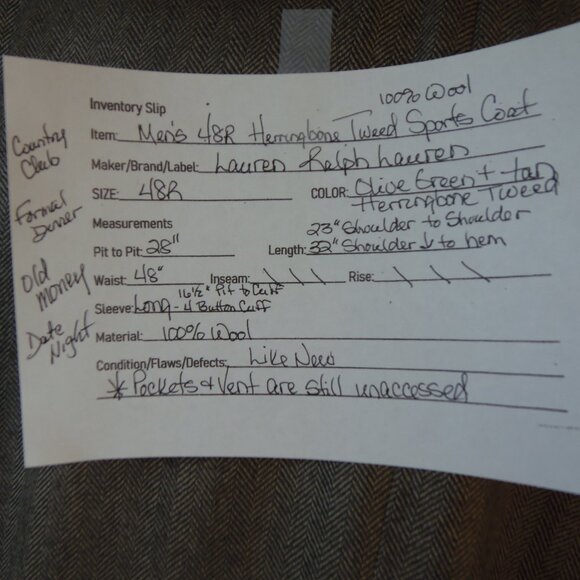 100% Wool
Inventory Slip
Item: Men's 48R Herringbone Tweed Sports Coat
Maker/Brand/Label: Lauren Ralph Lauren
SIZE: 48R COLOR: Olive Green + tan
Herringbone Tweed
Measurements 23" Shoulder to Shoulder
Pit to Pit: 28" Length: 32" Shoulder ↓ to hem
Waist: 48" Inseam: \ \ \ Rise: \ \ \
16½" Pit to Cuff
Sleeve: Long - 4 Button Cuff
Material: 100% Wool
Condition/Flaws/Defects: Like New
* Pockets & Vent are still unaccessed
Country
Club
Formal
Dinner
Old
Money
Date
Night